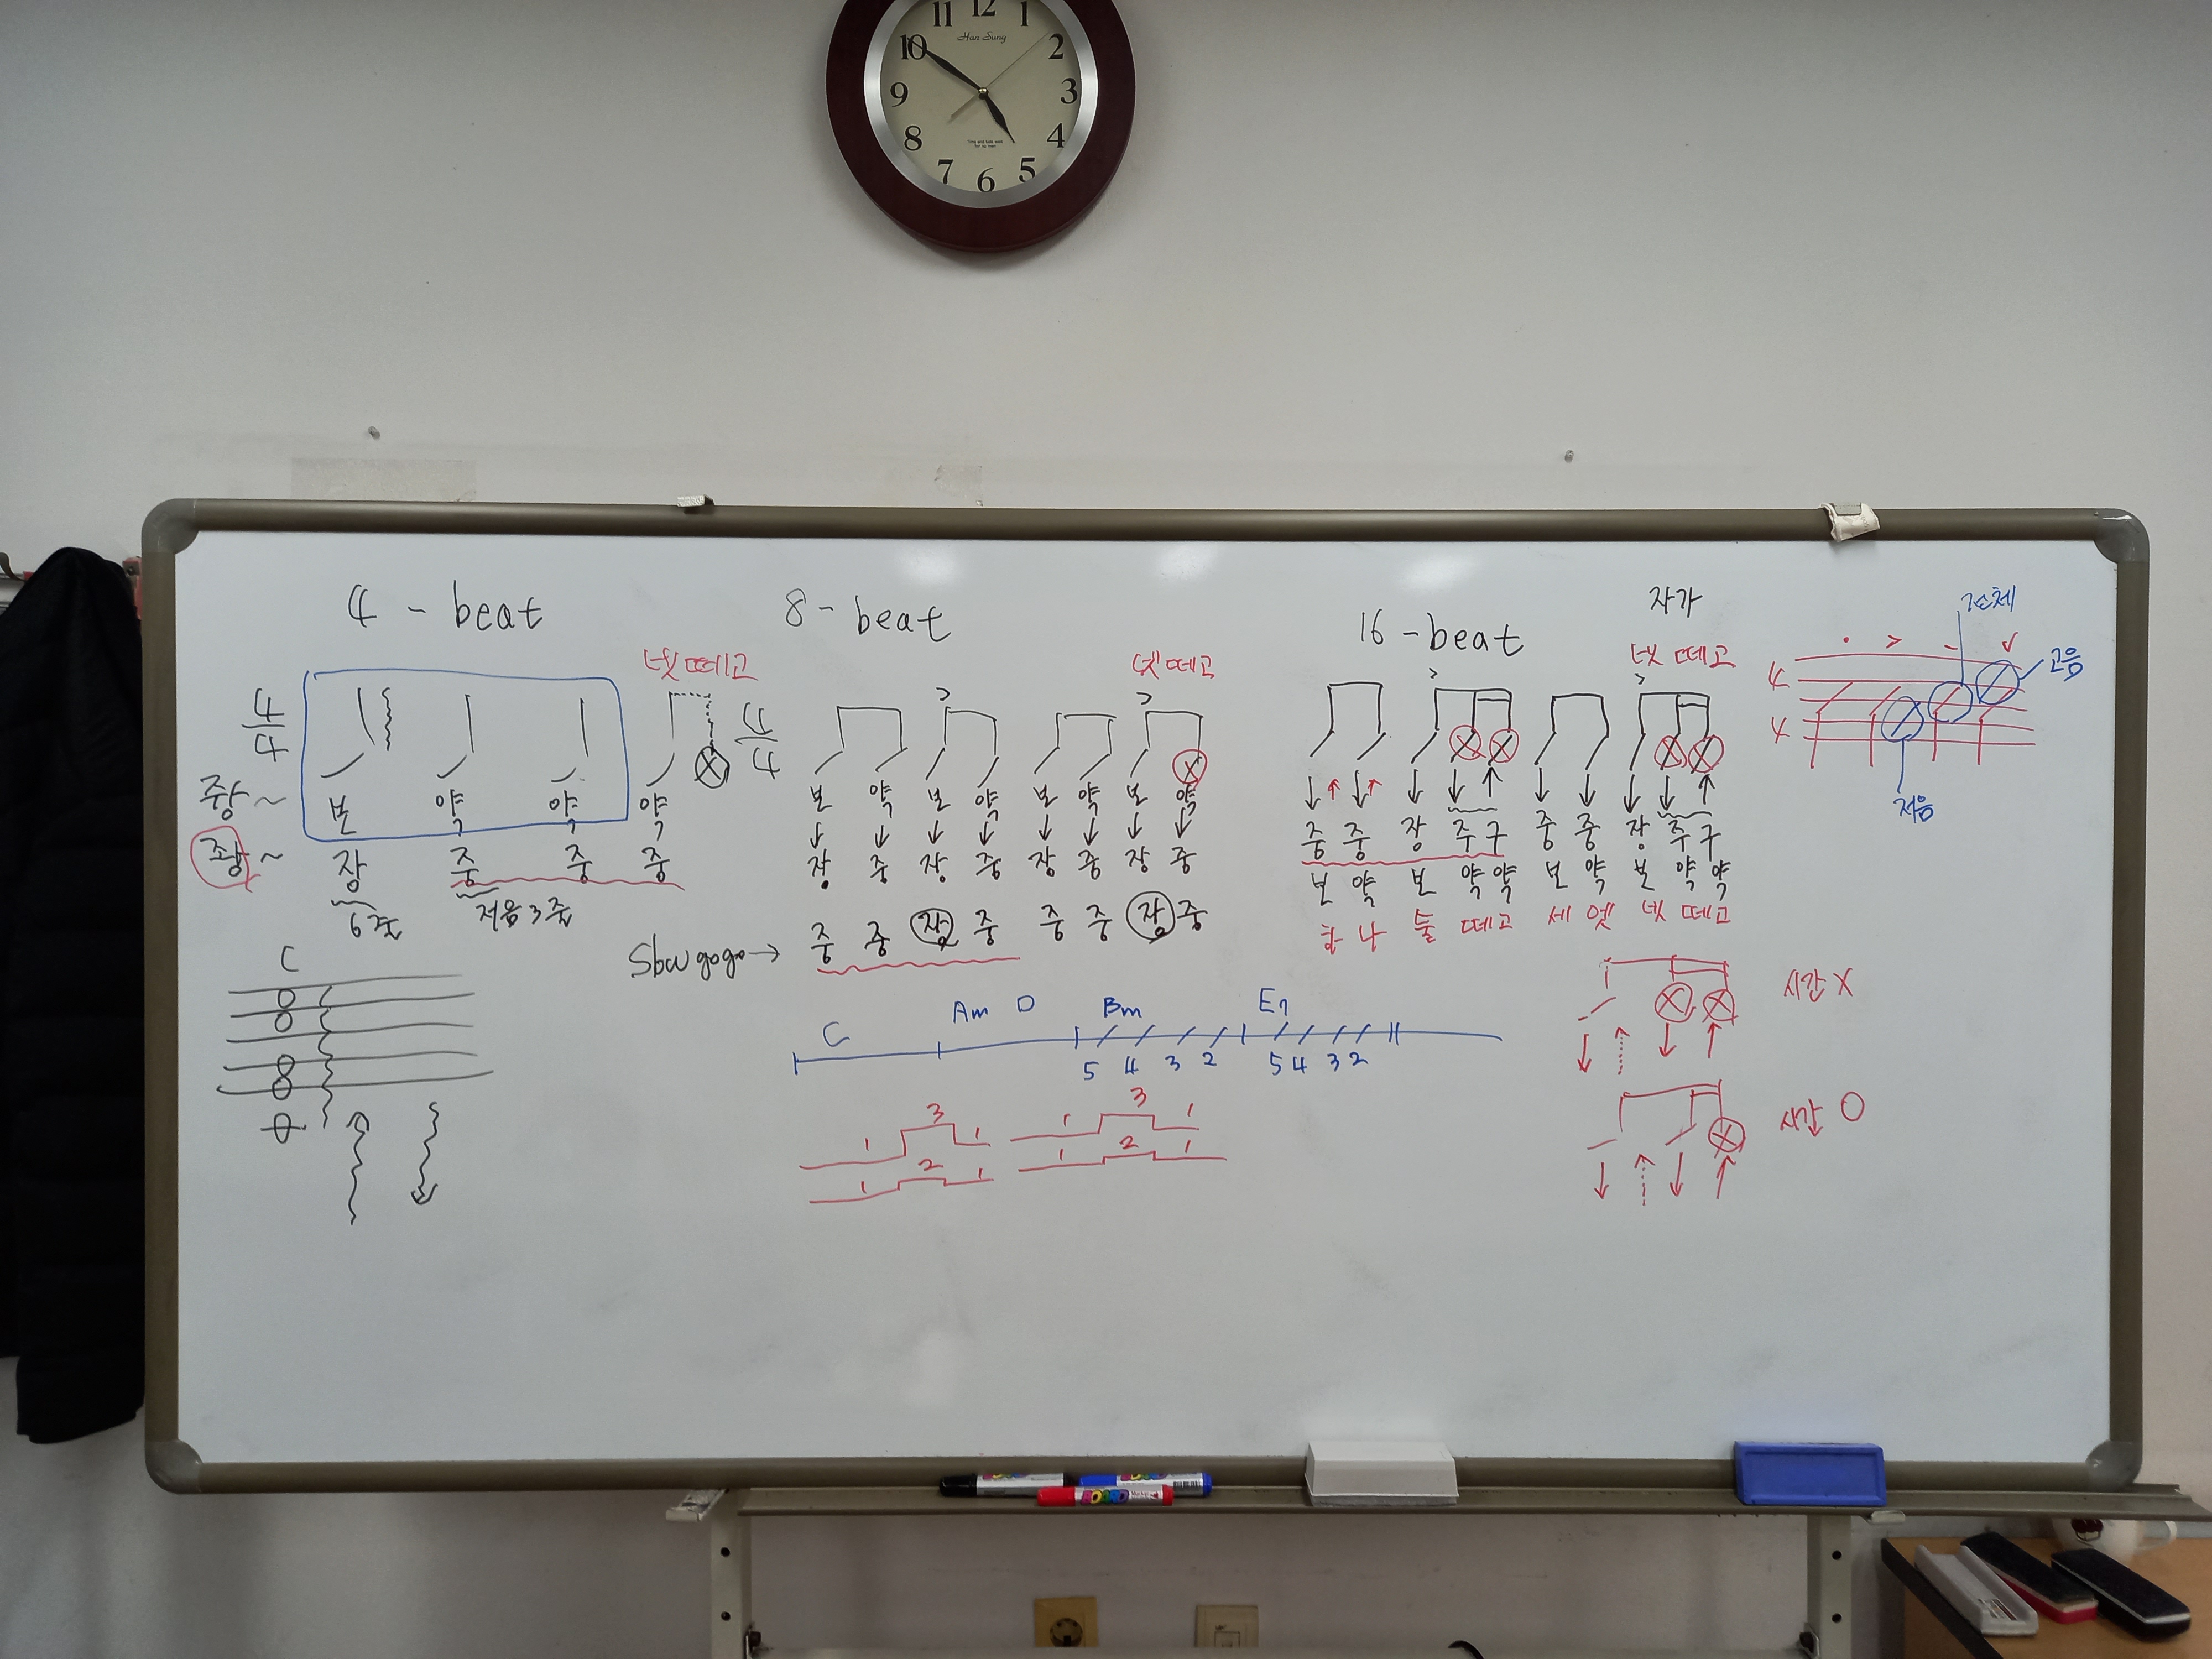 11 12 1
10 2
9 3
8 4
7 6 5
Han Sung
4 - beat
넷 떼고
4/4
본 약 약 약
쟝~
좡~
장 중 중 중
6줄 저음 3줄
C
8 - beat
넷 떼고
> >
4/4
본 약 본 약 본 약 본 약
장 중 장 중 장 중 장 중
Slow gogo → 중 중 장 중 중 중 장 중
C Am D Bm E7
5 4 3 2 5 4 3 2
1 3 1 1 3 1
1 2 1 1 2 1
16 - beat
자가
넷 떼고
> >
중 중 장 주 구 중 중 장 주 구
본 약 본 약 약 본 약 본 약 약
하 나 둘 떼고 세 엣 넷 떼고
시간 X
시간 O
전체
· > - √
4
4
고음
저음
BOARD